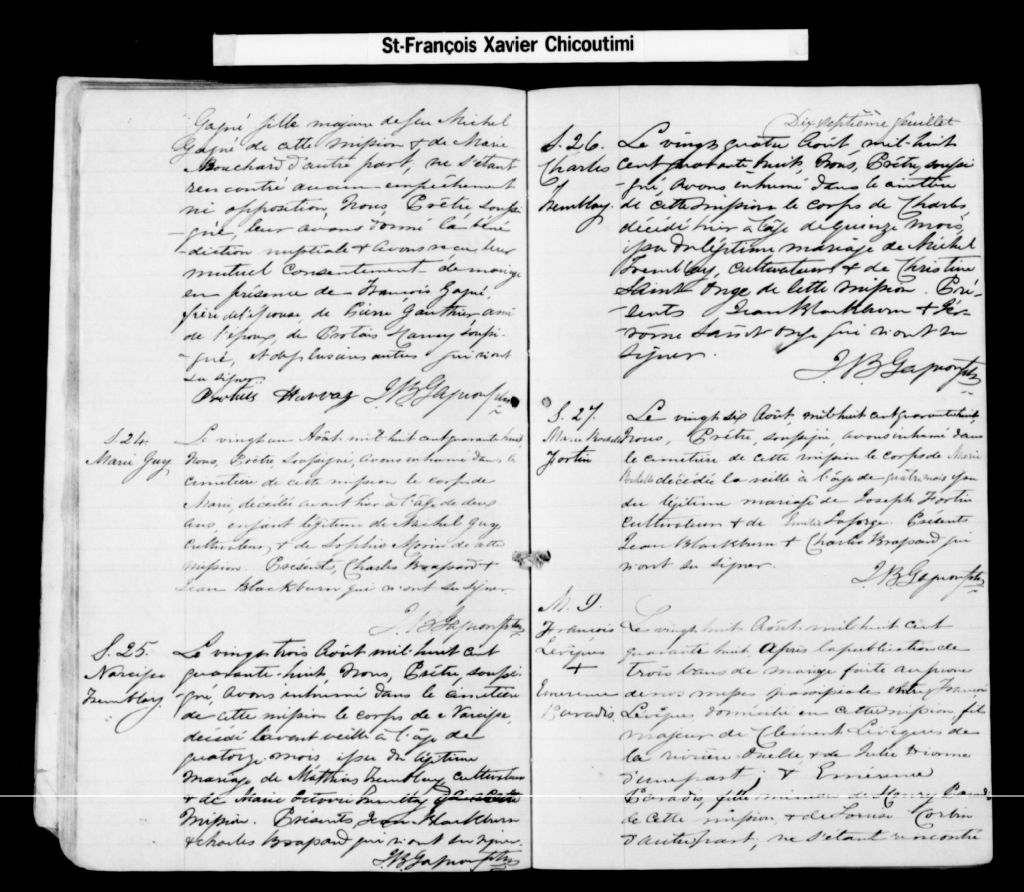 St-François Xavier Chicoutimi
Gagné fille majeure de feu Michel
Gagné de cette mission & de Marie
Bouchard d'autre part, ne s'étant
rencontré aucun empêchement
ni opposition, Nous, Prêtre soussi-
-gné, leur avons donné la béné
diction nuptiale & avons reçu leur
mutuel consentement de mariage
en présence de François Gagné,
frère de l'épouse, de Pierre Gauthier ami
de l'époux, de Protais Harvay soussi-
-gné, et de plusieurs autres qui n'ont
su signer.
Protais Harvay J.B. Gagnon ptre
S. 24.
Marie Guy
Le vingt un Août mil huit cent quarante huit,
Nous, Prêtre, soussigné, avons inhumé dans le
cimetière de cette mission le corps de
Marie, décédée avant hier à l'âge de deux
ans, enfant légitime de Michel Guy
Cultivateur, & de Sophie Morin de cette
mission. Présents, Charles Brassard &
Jean Blackburn qui n'ont su signer
J.B. Gagnon ptre
S. 25.
Narcisse
Tremblay
Le vingt trois Août mil huit cent
quarante huit, Nous, Prêtre, soussi-
gné, avons inhumé dans le cimetière
de cette mission le corps de Narcisse,
décédé l'avant veille à l'âge de
quatorze mois issu du légitime
mariage de Matthias Tremblay cultivateur
& de Marie Octavie Tremblay de cette
mission. Présents Jean Blackburn
& Charles Brassard qui n'ont su signer.
J.B. Gagnon ptre
Dix septième feuillet
S. 26.
Charles
Tremblay.
Le vingt quatre Août mil huit
cent quarante huit, Nous, Prêtre, soussi-
-gné, avons inhumé dans le cimetière
de cette mission le corps de Charles
décédé hier à l'âge de quinze mois,
issu du légitime mariage de Michel
Tremblay, cultivateur & de Christine
Saint Onge de cette mission. Pré-
-sents Jean Blackburn & Jé-
-rôme Saint Onge qui n'ont su
signer.
J.B. Gagnon ptre
S. 27.
Fortin
Le vingt six Août, mil huit cent quarante huit,
Nous, Prêtre, soussigné, avons inhumé dans
le cimetière de cette mission le corps de Marie
décédée la veille à l'âge de quatre mois issu
du légitime mariage de Joseph Fortin
cultivateur & de Emilie Laforge. Présents
Jean Blackburn & Charles Brassard qui
n'ont su signer.
J.B. Gagnon ptre
M. 9.
François
Levêques
+
Emerence
Paradis
Le vingt huit Août mil huit cent
quarante huit Après la publication de
trois bans de mariage faite au prône
de nos messes paroissiales entre François
Levêques, domicilié en cette mission fils
majeur de Clement Levêques de
la rivière Ouelle & de Julie Dionne
d'une part; & Emérence
Paradis, fille mineure de Henry Paradis
de cette mission, & de Fortin
d'autre part; ne s'étant rencontré